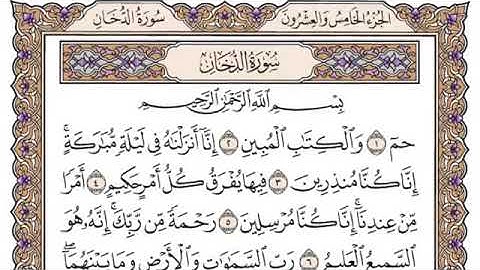 سُورَةُ الدُّخَانِ
الجُزْءُ الخَامِسُ وَالعِشْرُونَ
سُورَةُ الدُّخَانِ
بِسْمِ اللَّهِ الرَّحْمَٰنِ الرَّحِيمِ
حمٓ ۝١ وَٱلْكِتَٰبِ ٱلْمُبِينِ ۝٢ إِنَّآ أَنزَلْنَٰهُ فِى لَيْلَةٍ مُّبَٰرَكَةٍ ۚ
إِنَّا كُنَّا مُنذِرِينَ ۝٣ فِيهَا يُفْرَقُ كُلُّ أَمْرٍ حَكِيمٍ ۝٤ أَمْرًا
مِّنْ عِندِنَآ ۚ إِنَّا كُنَّا مُرْسِلِينَ ۝٥ رَحْمَةً مِّن رَّبِّكَ ۚ إِنَّهُۥ هُوَ
ٱلسَّمِيعُ ٱلْعَلِيمُ ۝٦ رَبِّ ٱلسَّمَٰوَٰتِ وَٱلْأَرْضِ وَمَا بَيْنَهُمَآ ۖ